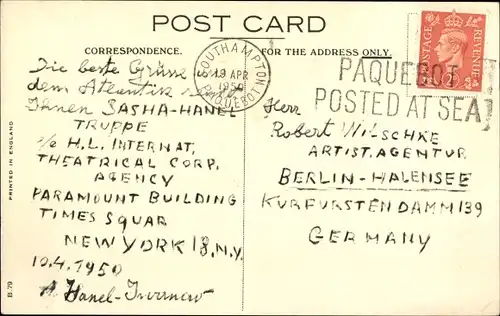 POST CARD
CORRESPONDENCE.
FOR THE ADDRESS ONLY.
Die beste Grüsse
dem Atlantik
Ihnen SASHA-HANEL
TRUPPE
c/o H.L. INTERNAT,
THEATRICAL CORP.
AGENCY
PARAMOUNT BUILDING
TIMES SQUAR
NEW YORK 18, N.Y.
10.4.1950
A. Hanel-
SOUTHAMPTON
19 APR
1950
PAQUEBOT
POSTAGE
REVENUE
PAQUEBOT
POSTED AT SEA
Herr
Robert Wilschke
ARTIST. AGENTUR
BERLIN-HALENSEE
KURFURSTENDAMM 139
GERMANY
PRINTED IN ENGLAND
B.79